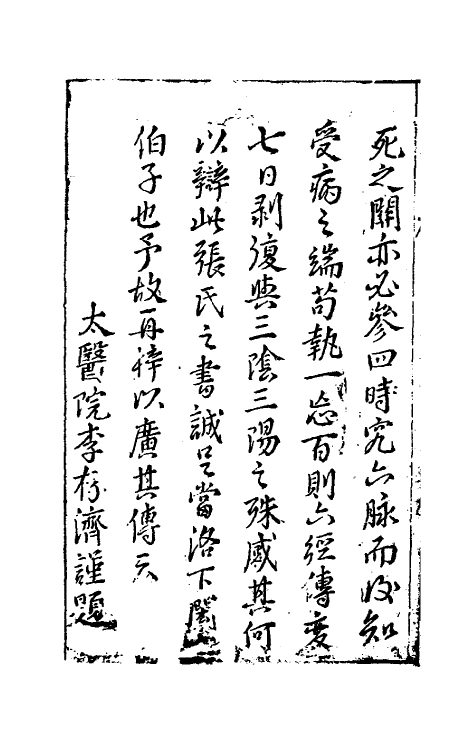 死之關亦必參四時究六脉而後知
受病之端苟執一忘百則六經傳變
七日剥復與三陰三陽之殊感其何
以辯此張氏之書誠足當洛下閎
伯子也予故再梓以廣其傳云
太醫院李存濟謹題